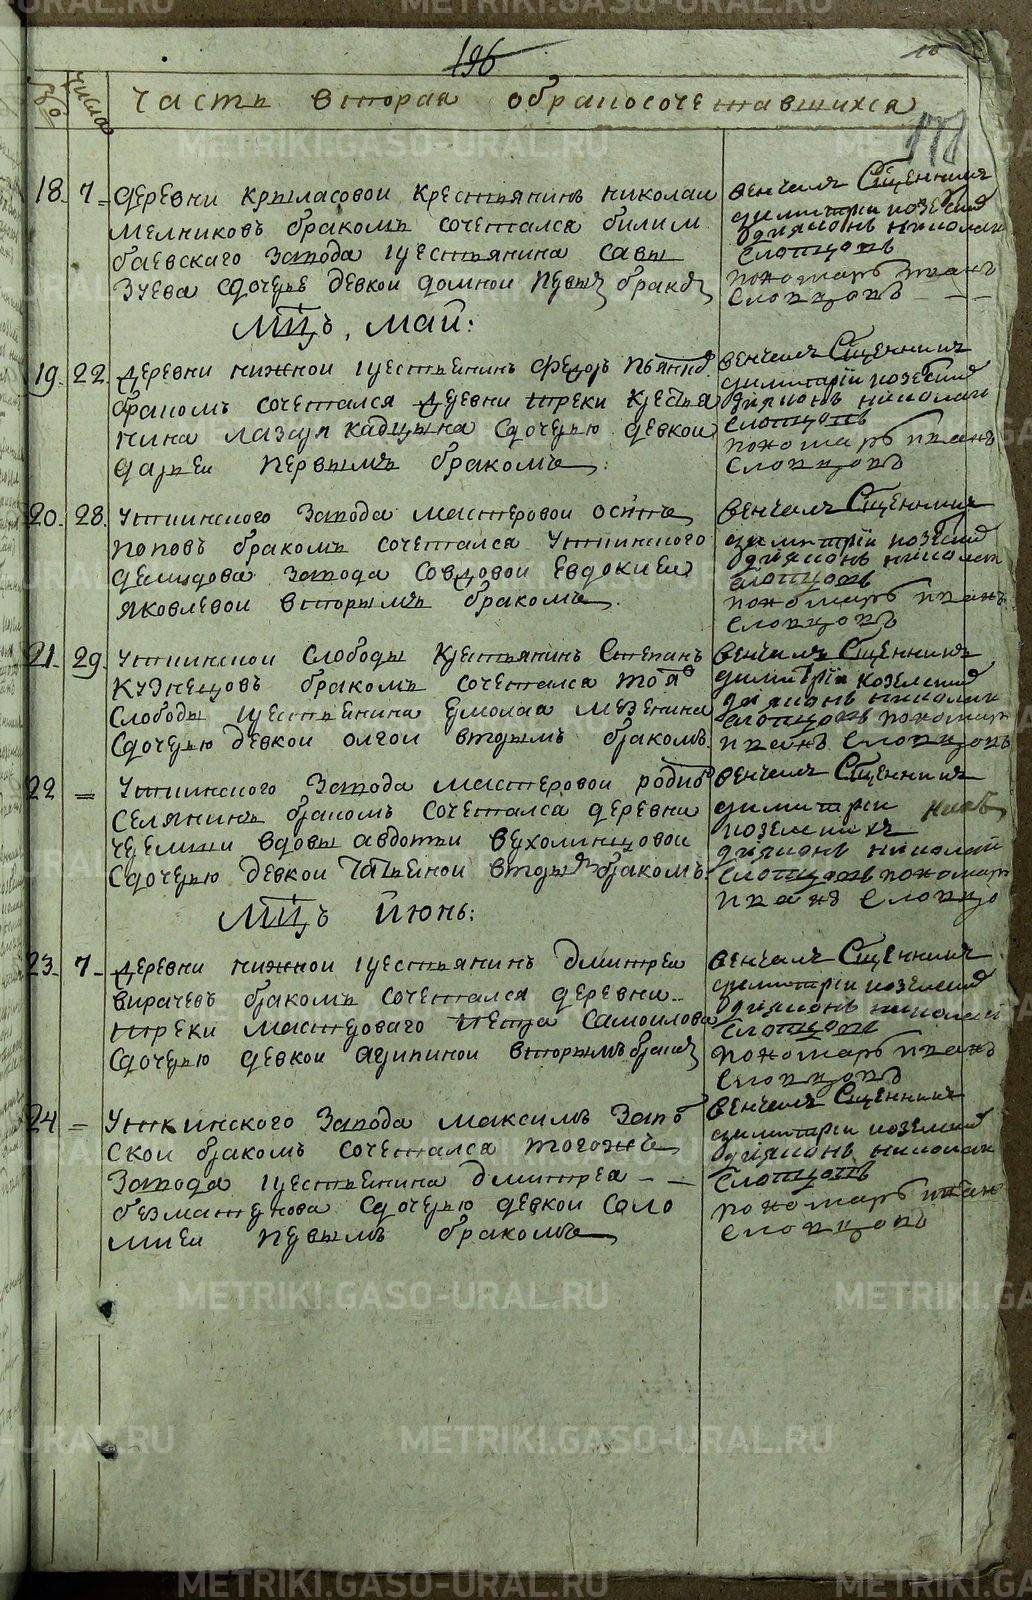 196
№
числа
часть вторая обракосочетавшихся
177
18. 7 деревни крыласовои крестьянинъ николаи
мелниковъ бракомъ сочетался билим
баевскаго завода крестьянина савы
зуева здочерью девкои домнои первы бракомъ
венчалъ Сщенникъ
димитрїи козелскиi
дияконъ николаи
словцовъ
пономарь иванъ
словцовъ
Мцъ, маи:
19. 22. деревни нижнои крестьенинъ федоръ пьянко
бракомъ сочетался деревни треки крестья
нина лазаря кадцына здочерью девкои
дарьеи первымъ бракомъ:
венчалъ Сщенникъ
димитрїи козелскиi
дияконъ николаи
словцовъ
пономарь иванъ
словцовъ
20. 28. уткинского завода мастеровои осипъ
поповъ бракомъ сочетался уткинского
демидова завода совдовои евдокиеи
яковлевои вторымъ бракомъ.
венчалъ Сщенникъ
димитрїи козелскиi
дияконъ николаи
словцовъ
пономарь иванъ
словцовъ
21. 29. уткинскои слободы крестьянинъ степанъ
кузнецовъ бракомъ сочетался тоя
слободы крестьенина ермолаа мезенина
здочерью девкои олгои вторымъ бракомъ
венчалъ Сщенникъ
димитрїи козелскиi
дияконъ николаи
словцовъ пономарь
иванъ словцовъ
22 = уткинского завода мастеровои родио
селянинъ бракомъ сочетался деревни
черемши вдовы авдотьи
здочерью девкои татьенои вторы бракомъ.
венчалъ Сщенникъ
димитрїи
козелскихъ
дияконъ николаи
словцовъ пономарь
иванъ словцо
Мцъ июнь:
23. 7 деревни нижнои крестьянинъ дмитреи
вирачевъ бракомъ сочетался деревни
треки мастероваго петра самоилова
здочерью девкои агрипинои вторымъ бракомъ
венчалъ Сщенникъ
димитрїи козелскиi
дияконъ николаи
словцовъ
пономарь иванъ
словцовъ
24 = уткинского завода максимъ
скои бракомъ сочетался тогожъ
завода крестьенина дмитреа
безматерхова здочерью девкои соло
миеи первымъ бракомъ
венчалъ Сщенникъ
димитрїи козелскиi
дияконъ николаи
словцовъ
пономарь иванъ
словцовъ
METRIKI.GASO-URAL.RU